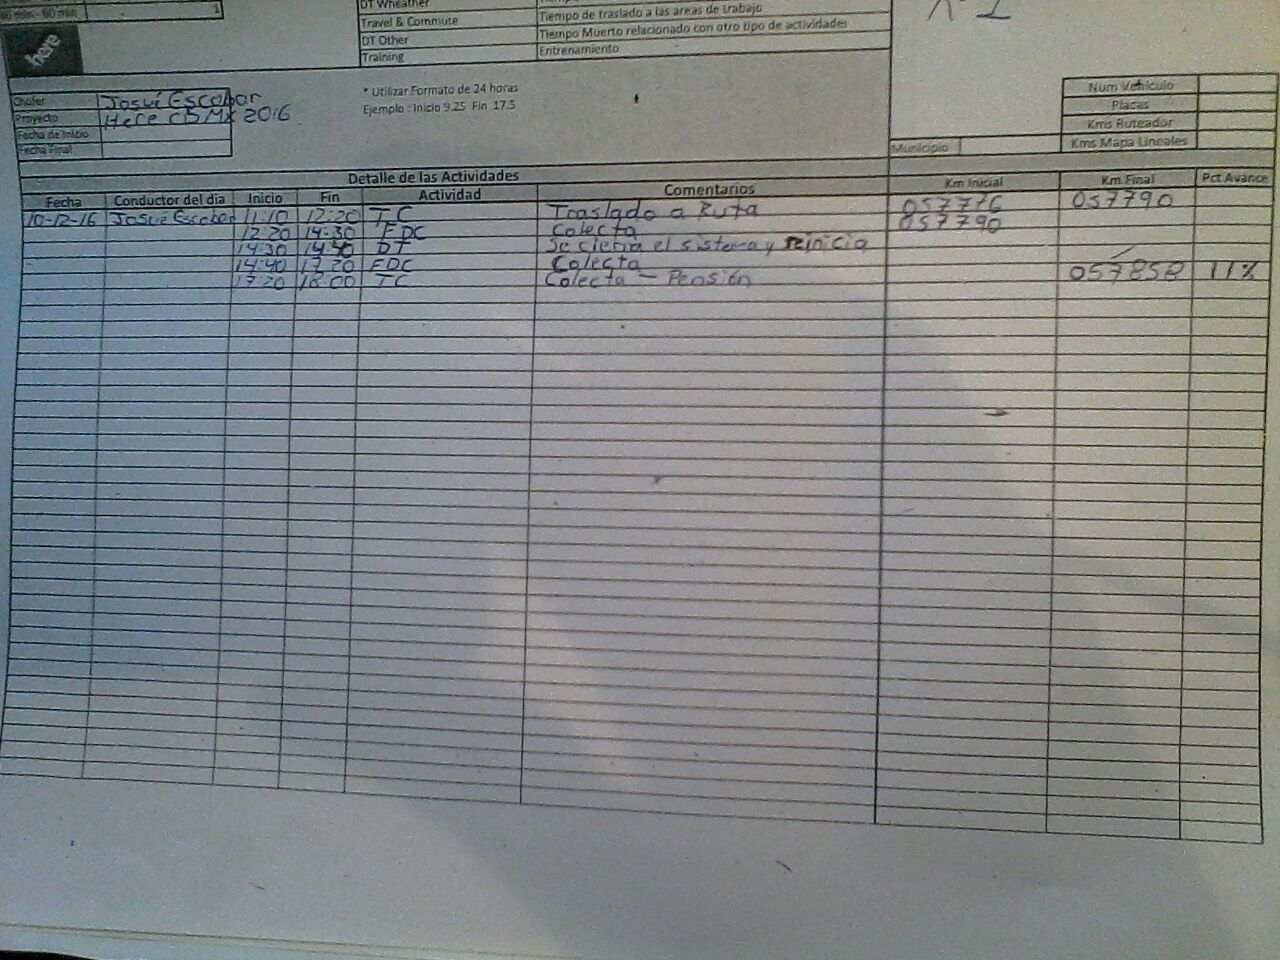 60 min - 90 min 1
DT Wheather
Travel & Commute Tiempo de traslado a las areas de trabajo
DT Other Tiempo Muerto relacionado con otro tipo de actividades
Training Entrenamiento
here
Chofer Josué Escobar
Proyecto Here CDMX 2016
Fecha de Inicio
Fecha Final
* Utilizar Formato de 24 horas
Ejemplo : Inicio 9.25 Fin 17.5
Num Vehiculo
Placas
Kms Ruteador
Kms Mapa Lineales
Municipio
Detalle de las Actividades
Fecha Conductor del dia Inicio Fin Actividad Comentarios Km Inicial Km Final Pct Avance
10-12-16 Josué Escobar 11:10 12:20 TC Traslado a Ruta 057776 057790
12:20 14:30 FDC Colecta 057790
14:30 14:40 DT Se cierra el sistema y reinicia
14:40 17:20 FDC Colecta
17:20 18:00 TC Colecta - Pensión 057858 11%